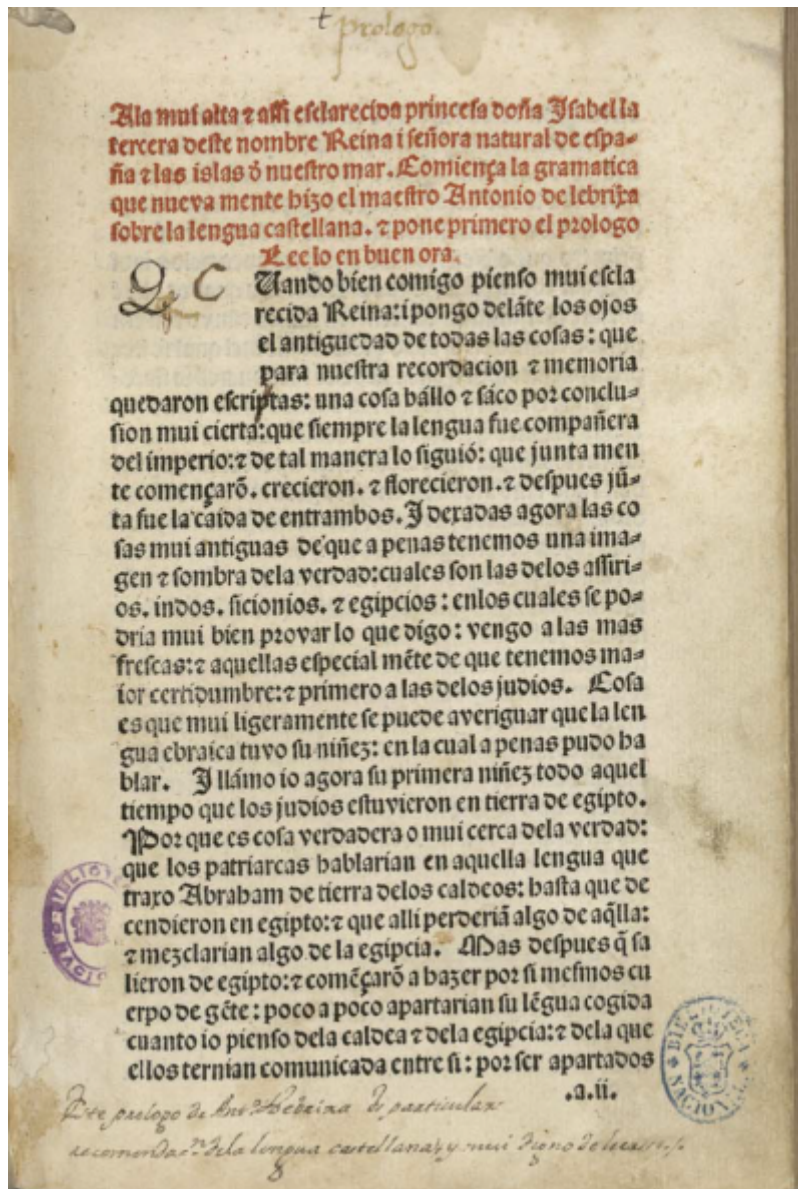 prologo.
A la mui alta ⁊ assi esclarecida princesa doña Isabel la
tercera deste nombre Reina i señora natural de espa-
ña ⁊ las islas đ nuestro mar. Comiença la gramatica
que nueva mente hizo el maestro Antonio de lebrixa
sobre la lengua castellana. ⁊ pone primero el prologo
Lee lo en buen ora.
Q C Uando bien comigo pienso mui escla
recida Reina: i pongo delãte los ojos
el antiguedad de todas las cosas: que
para nuestra recordacion ⁊ memoria
quedaron escriptas: una cosa hállo ⁊ sáco por conclu-
sion mui cierta: que siempre la lengua fue compañera
del imperio: ⁊ de tal manera lo siguió: que junta men
te començarõ. crecieron. ⁊ florecieron. ⁊ despues jũ-
ta fue la caida de entrambos. I dexadas agora las co
sas mui antiguas de que a penas tenemos una ima-
gen ⁊ sombra dela verdad: cuales son las delos assiri-
os. indos. sicionios. ⁊ egipcios: enlos cuales se po-
dria mui bien provar lo que digo: vengo a las mas
frescas: ⁊ aquellas especial mẽte de que tenemos ma-
ior certidumbre: ⁊ primero a las delos judios. Cosa
es que mui ligeramente se puede averiguar que la len
gua ebraica tuvo su niñez: en la cual a penas pudo ha
blar. I llámo io agora su primera niñez todo aquel
tiempo que los judios estuvieron en tierra de egipto.
Por que es cosa verdadera o mui cerca dela verdad:
que los patriarcas hablarian en aquella lengua que
traxo Abraham de tierra delos caldeos: hasta que de
cendieron en egipto: ⁊ que alli perderiã algo de aq̃lla:
⁊ mezclarian algo de la egipcia. Mas despues q̃ sa
lieron de egipto: ⁊ comẽçarõ a hazer por si mesmos cu
erpo de gẽte: poco a poco apartarian su lẽgua cogida
cuanto io pienso dela caldea ⁊ dela egipcia: ⁊ dela que
ellos ternian comunicada entre si: por ser apartados
.a.ii.
Este prologo de Antᵒ Nebrixa de particular
recomendaⁿ dela lengua castellana, y mui digno de